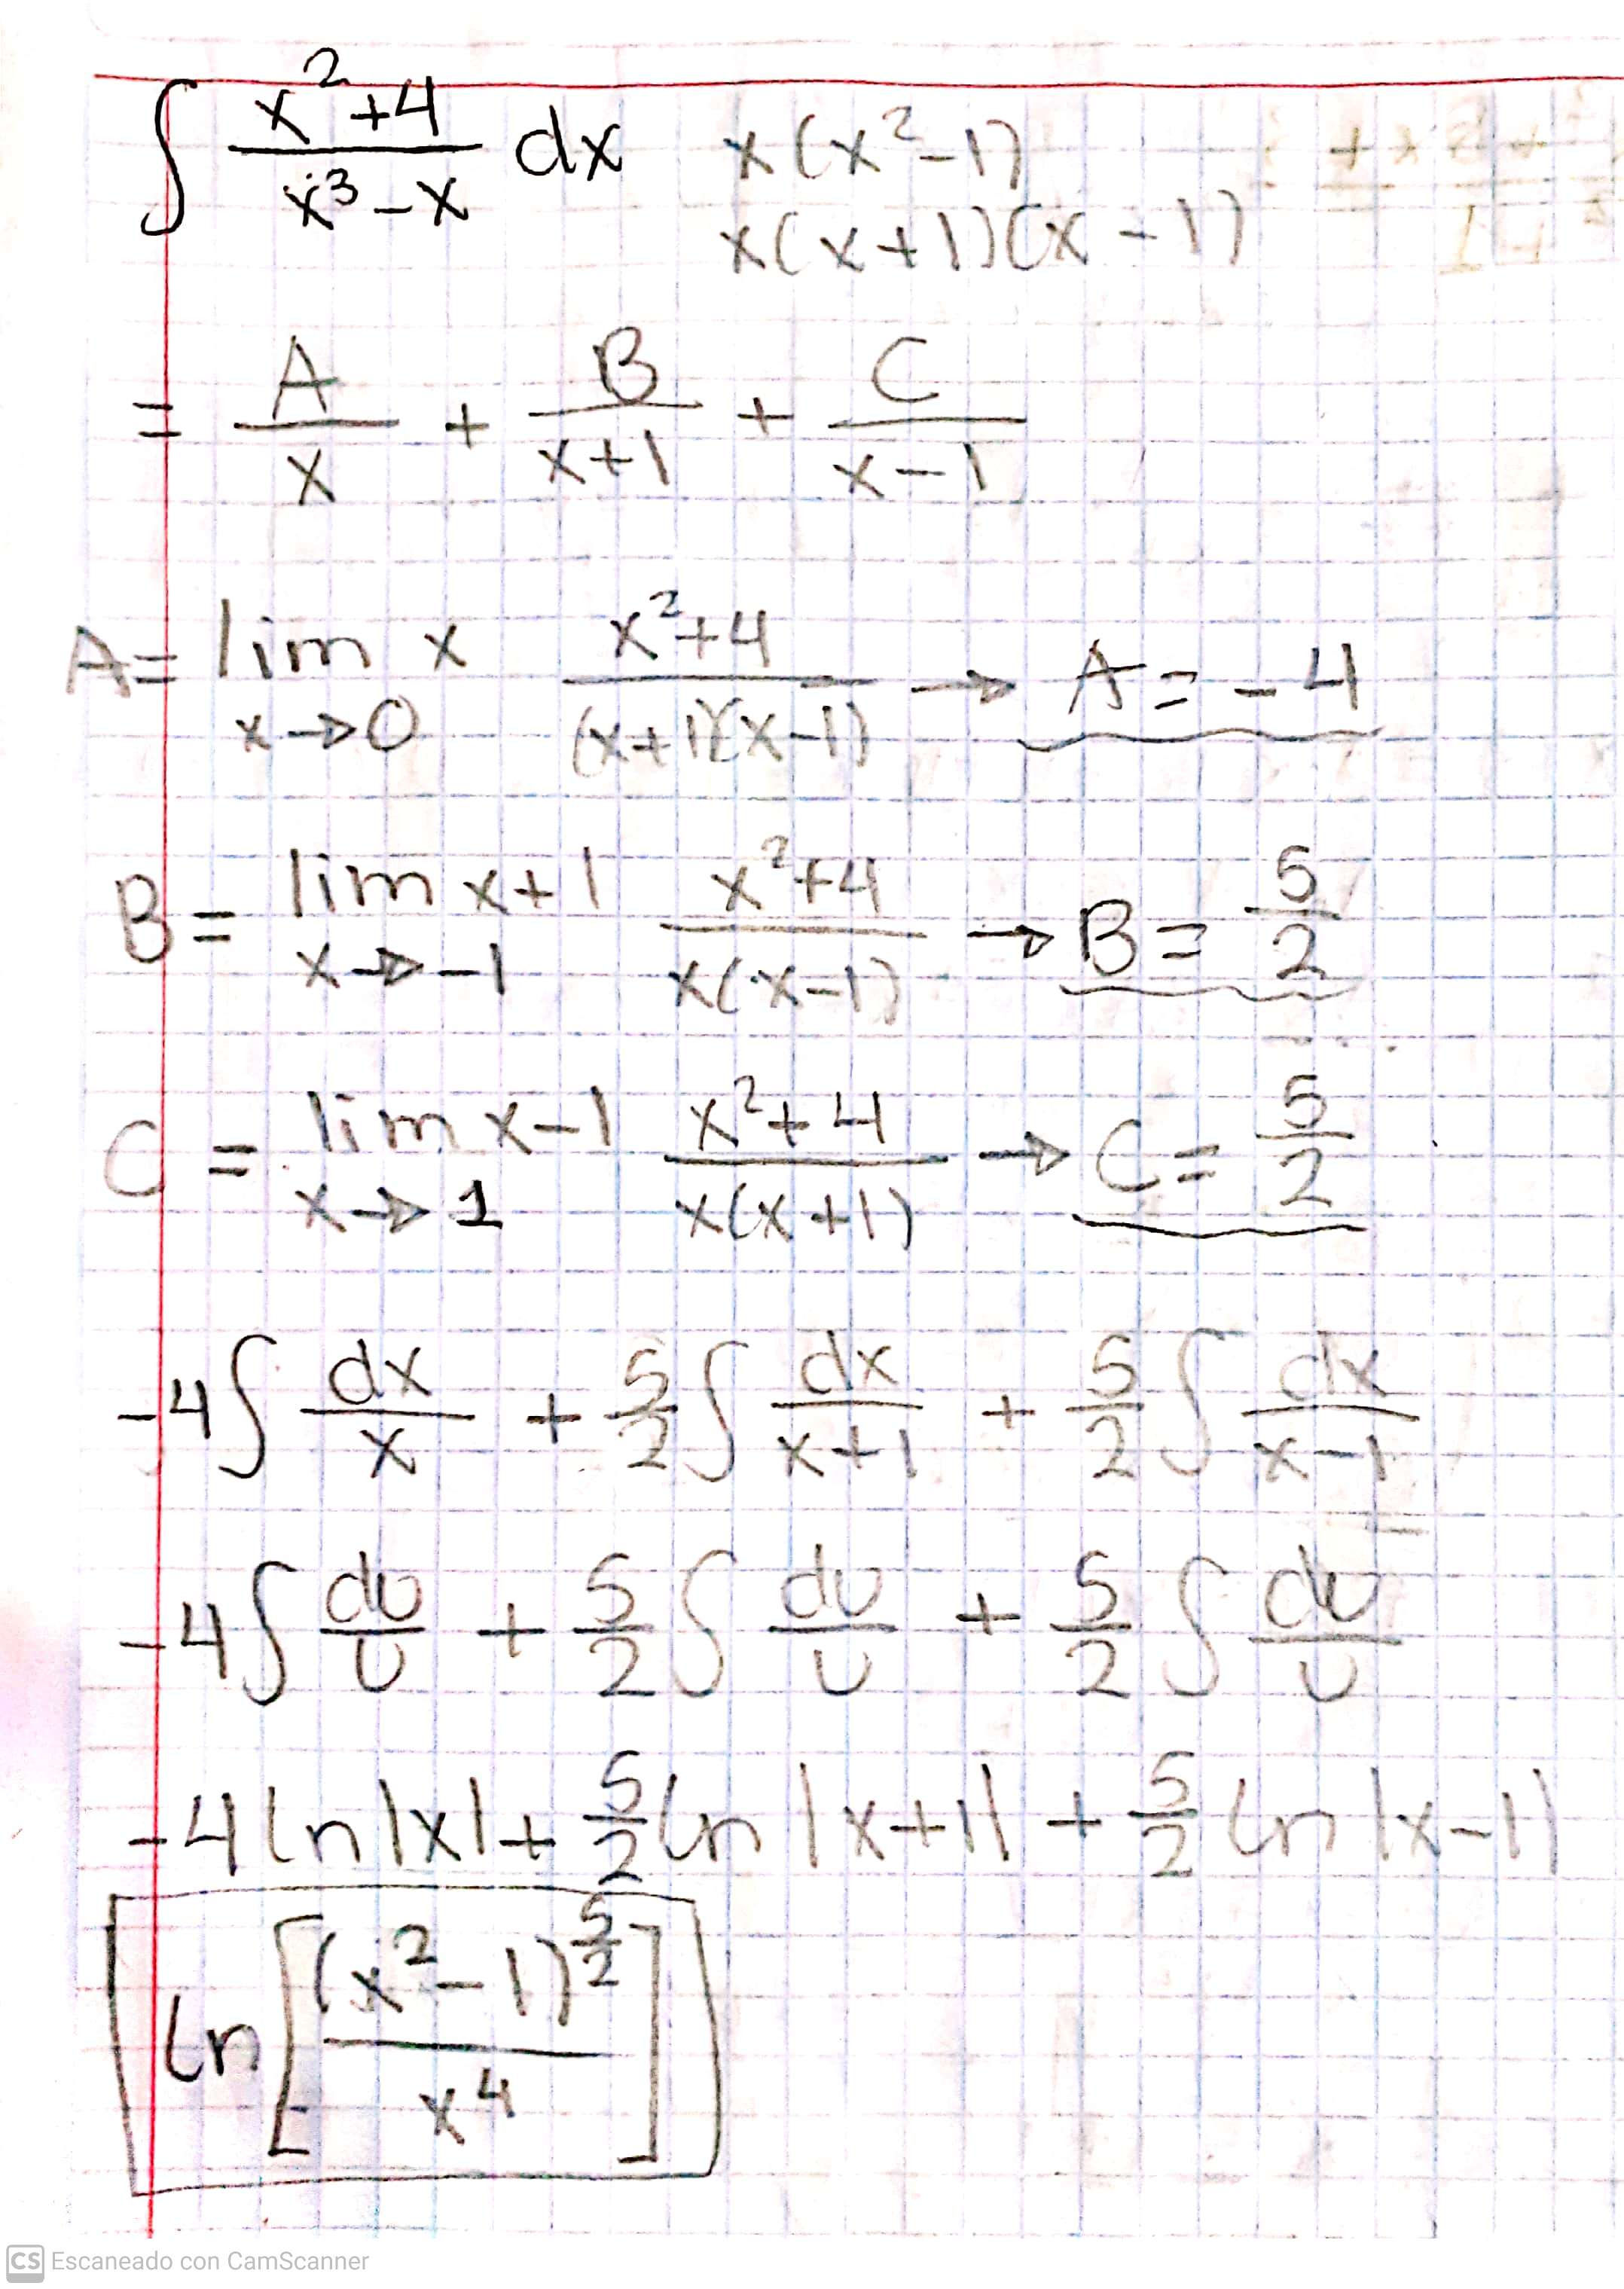 ∫ x²+4 / x³-x dx    x(x²-1)
x(x+1)(x-1)
= A/x + B/x+1 + C/x-1
A= lim x→0 x x²+4 / (x+1)(x-1) → A= -4
B= lim x→-1 x+1 x²+4 / x(x-1) → B= 5/2
C = lim x→1 x-1 x²+4 / x(x+1) → C= 5/2
-4∫ dx/x + 5/2 ∫ dx/x+1 + 5/2 ∫ dx/x-1
-4∫ du/u + 5/2 ∫ du/u + 5/2 ∫ du/u
-4 ln|x| + 5/2 ln|x+1| + 5/2 ln|x-1|
ln[(x²-1)^5/2 / x⁴]
CS Escaneado con CamScanner